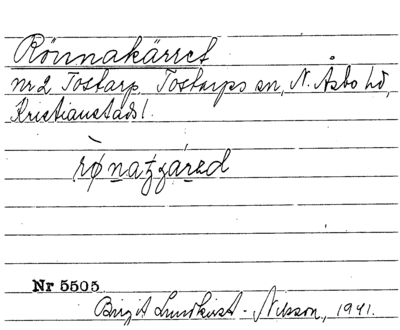 Rönnakärret
nr 2 Tostarp Tostarps sn, N. Åsbo hd,
Kristianstads l.
Nr 5505
Birgit Lundkvist-Nilsson, 1941.